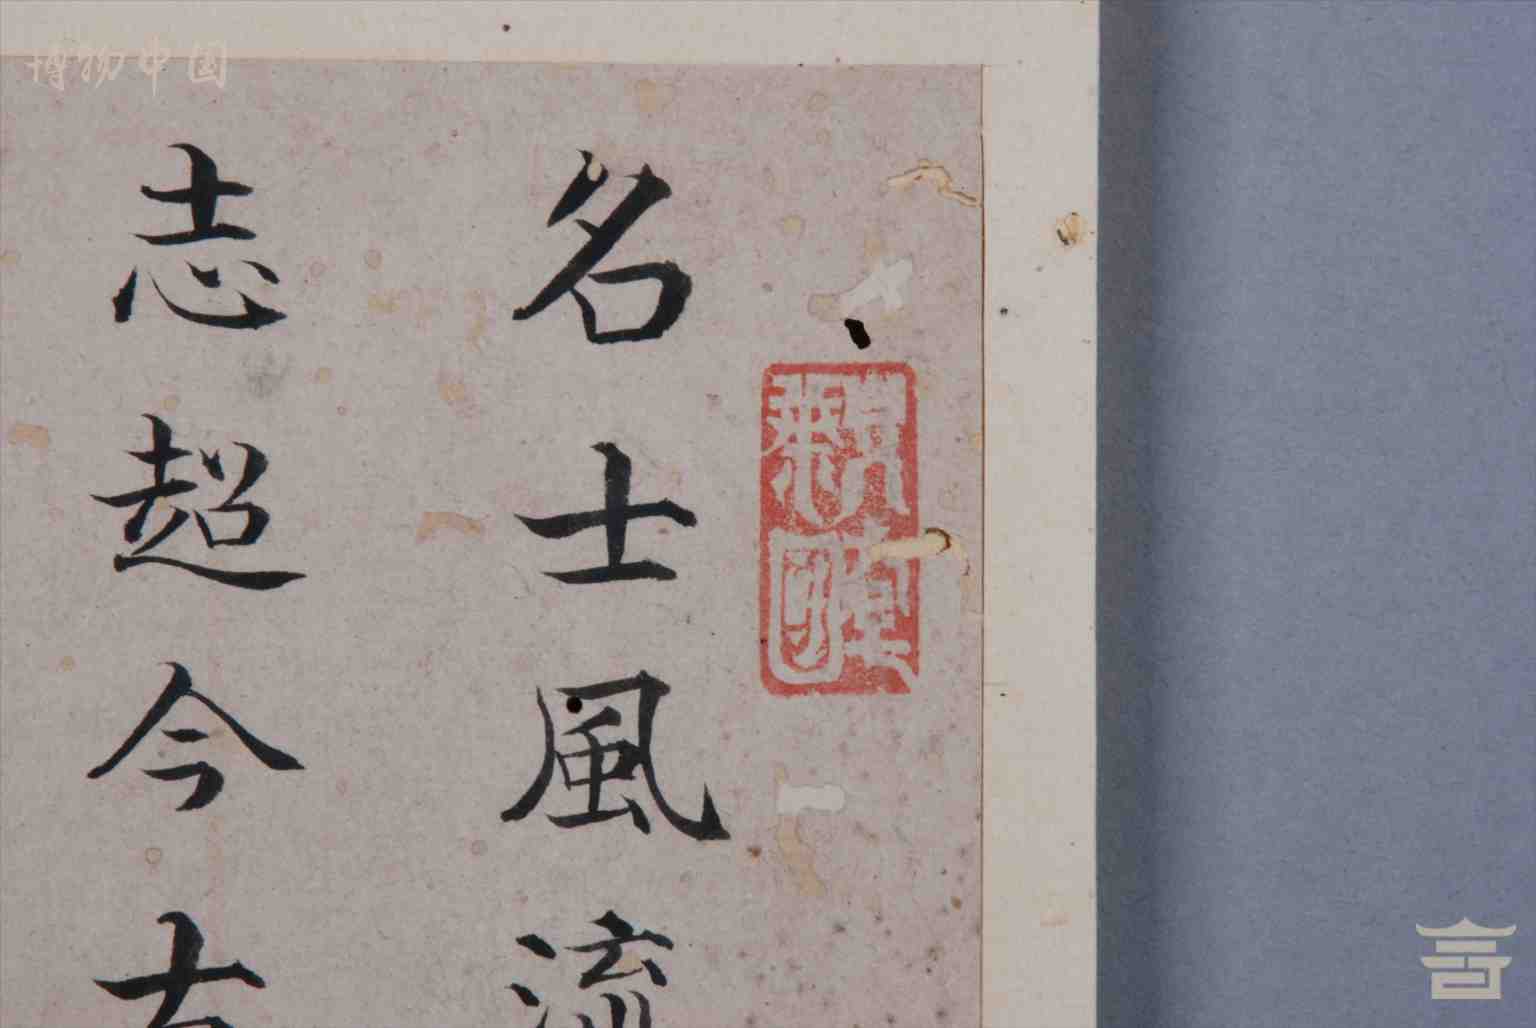 名士風流
志超今古
博物中国